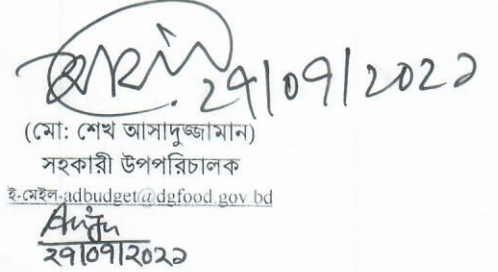 ২৭/০৭/২০২১
(মো: শেখ আসাদুজ্জামান)
সহকারী উপপরিচালক
ই-মেইল-adbudget@dgfood.gov.bd
২৭/০৭/২০২১